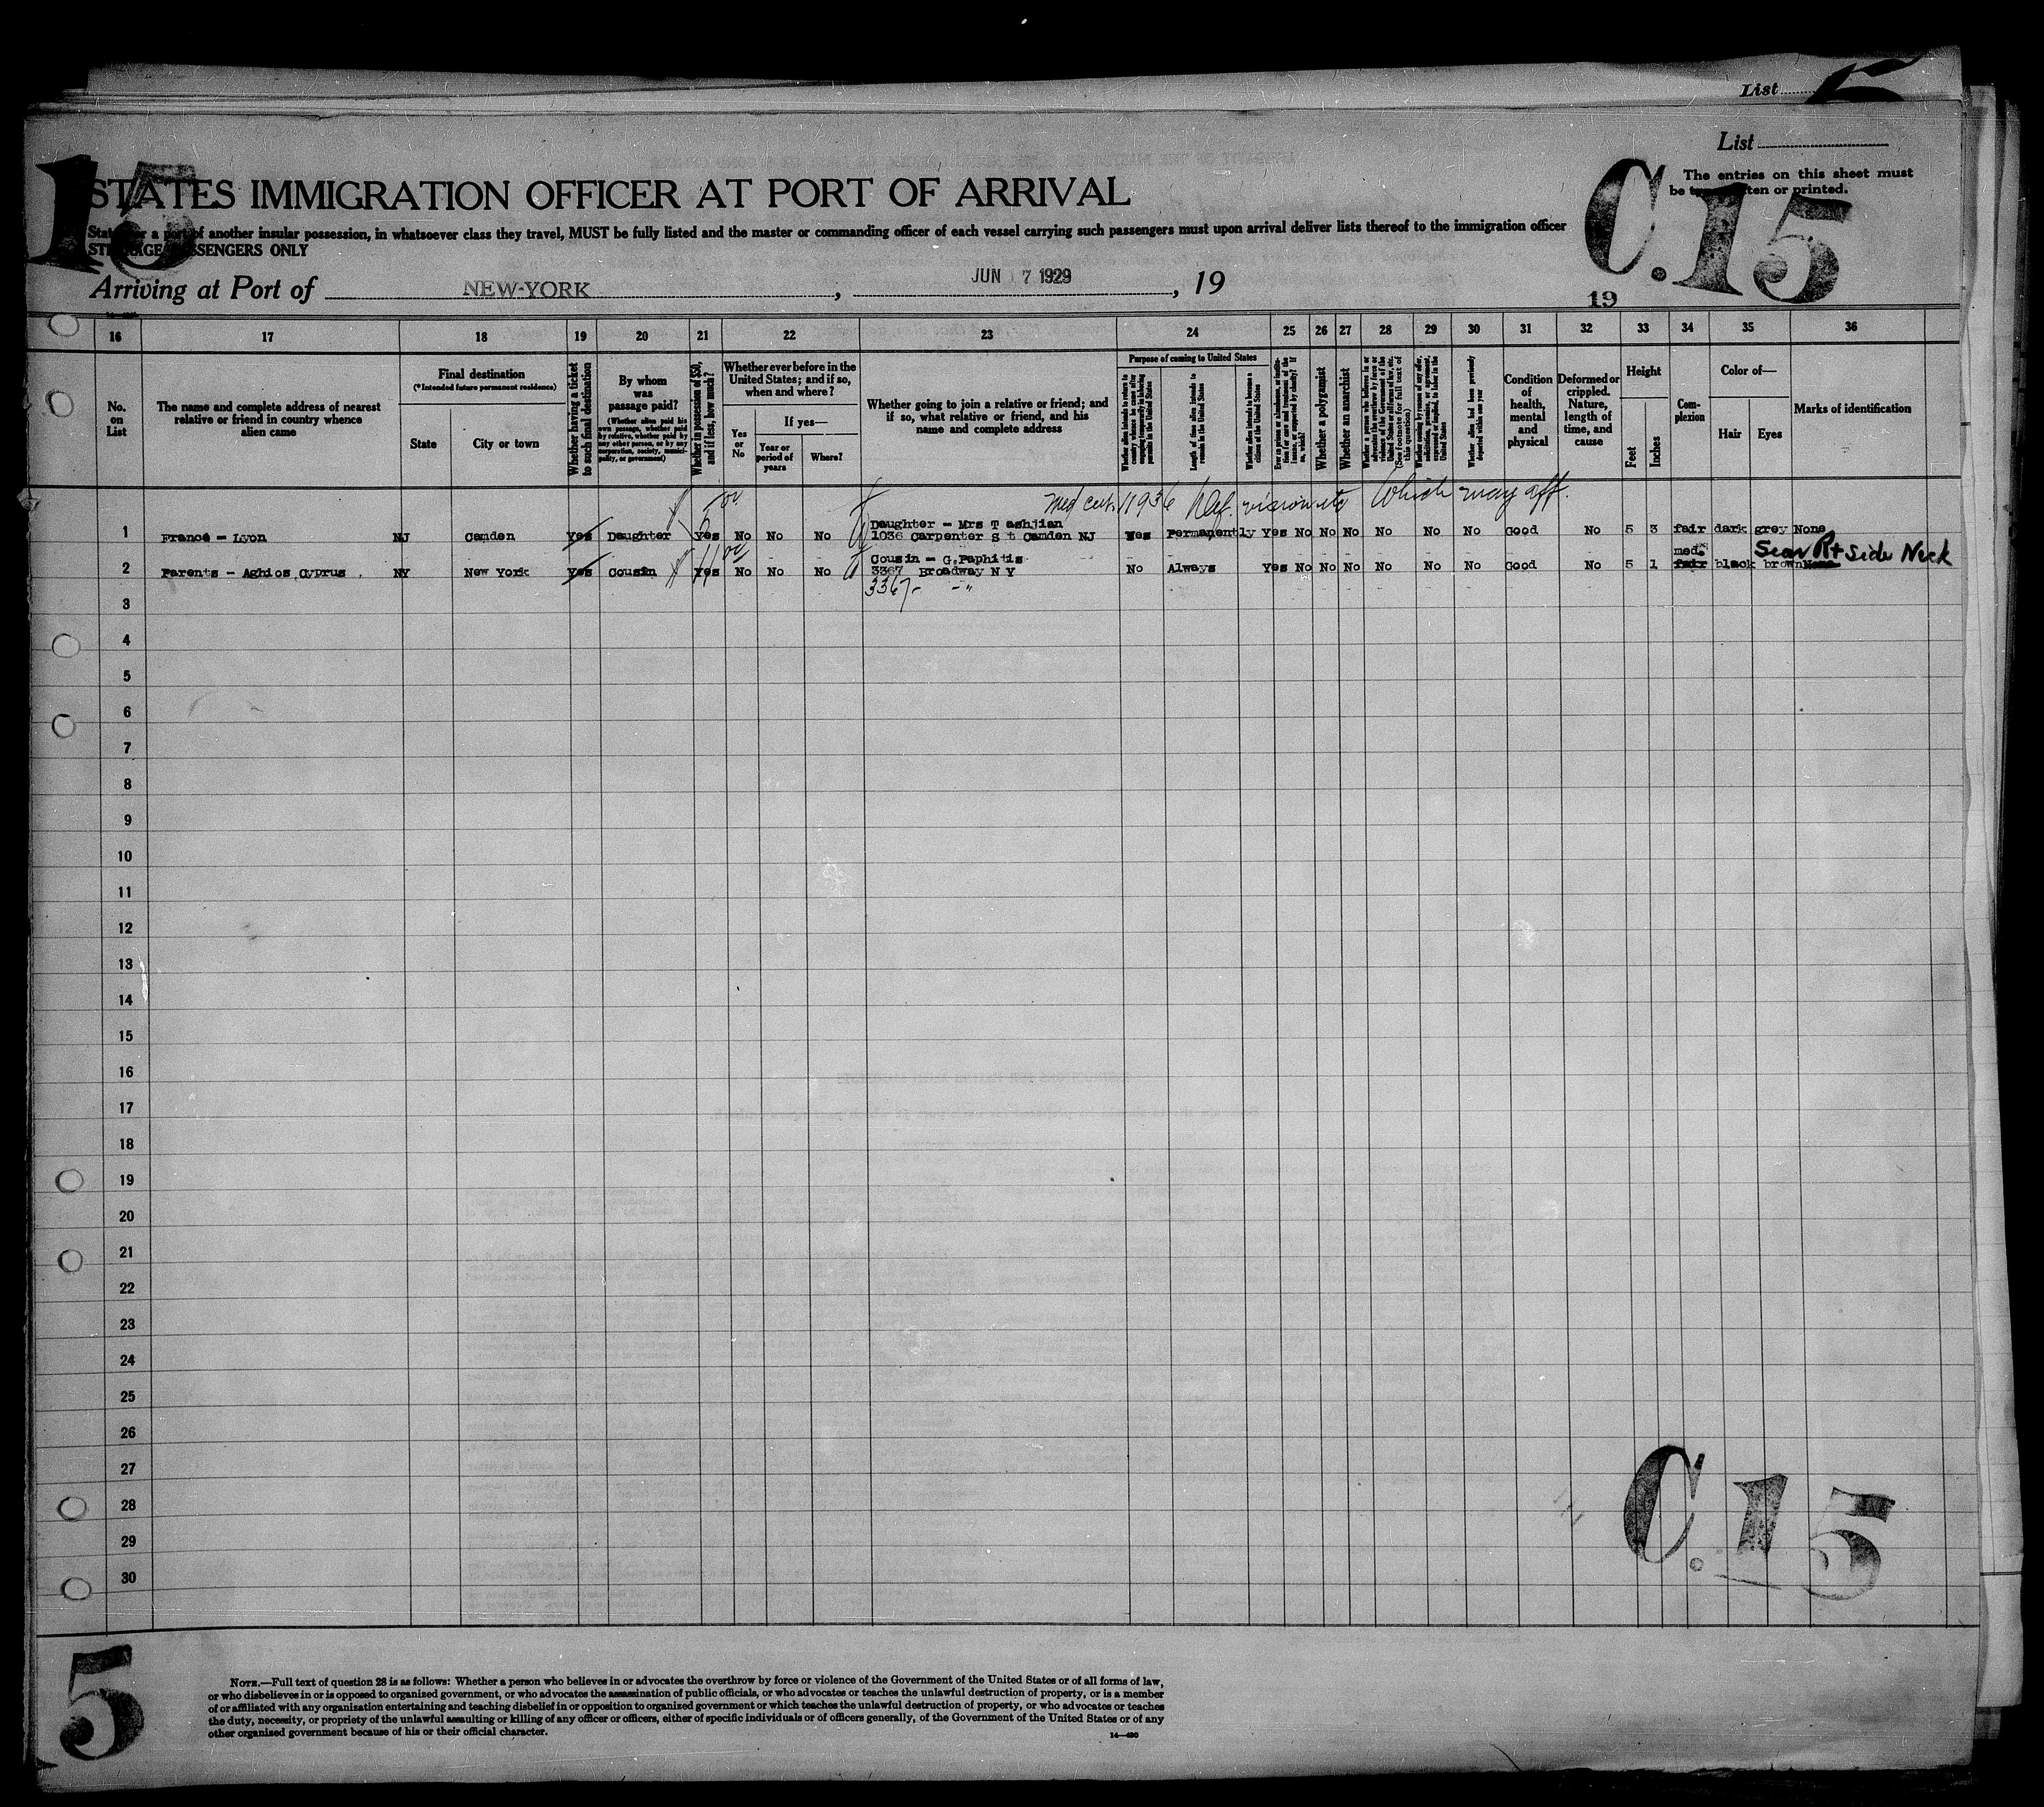 List
List
The entries on this sheet must
be typewritten or printed.
15
STATES IMMIGRATION OFFICER AT PORT OF ARRIVAL
C.15
States, or a port of another insular possession, in whatsoever class they travel, MUST be fully listed and the master or commanding officer of each vessel carrying such passengers must upon arrival deliver lists thereof to the immigration officer
STEERAGE PASSENGERS ONLY
Arriving at Port of NEW-YORK, JUN 17 1929, 19
19
16 17 18 19 20 21 22 23 24 25 26 27 28 29 30 31 32 33 34 35 36
No. on List
The name and complete address of nearest relative or friend in country whence alien came
Final destination
(*Intended future permanent residence)
State
City or town
Whether having a ticket to such final destination
By whom was passage paid?
(Whether alien paid his own passage, whether paid by relative, whether paid by any other person, or by any corporation, society, municipality, or government)
Whether in possession of $50, and if less, how much?
Whether ever before in the United States; and if so, when and where?
Yes or No
If yes—
Year or period of years
Where?
Whether going to join a relative or friend; and if so, what relative or friend, and his name and complete address
Purpose of coming to United States
Whether alien intends to return to country whence he came after engaging temporarily in laboring pursuits in the United States
Length of time alien intends to remain in the United States
Whether alien intends to become a citizen of the United States
Ever in prison or almshouse, or institution for care and treatment of the insane, or supported by charity? If so, which?
Whether a polygamist
Whether an anarchist
Whether a person who believes in or advocates the overthrow by force or violence of the Government of the United States or all forms of law, etc. (See footnote for full text of this question)
Whether coming by reason of any offer, solicitation, promise, or agreement, expressed or implied, to labor in the United States
Whether alien had been previously deported within one year
Condition of health, mental and physical
Deformed or crippled. Nature, length of time, and cause
Height
Feet
Inches
Complexion
Color of—
Hair
Eyes
Marks of identification
Med cert. 11936 Def. vision etc which may aff.
$ 5 00
Daughter - Mrs T ashjian
1 France - Lyon NJ Camden Yes Daughter Yes No No No 1036 Carpenter S t Camden NJ Yes Permanently Yes No No No No No No Good No 5 3 fair dark grey None
$ 11 00
Cousin - G.Paphitis
med. Scar Rt Side Neck
2 Parents - Aghios Cyprus NY New York Yes Cousin Yes No No No 3367 Broadway N Y No Always Yes No No No No No No Good No 5 1 fair black brown None
3367 - - "
3
4
5
6
7
8
9
10
11
12
13
14
15
16
17
18
19
20
21
22
23
24
25
26
27
28
29
30
C.15
5
NOTE.—Full text of question 28 is as follows: Whether a person who believes in or advocates the overthrow by force or violence of the Government of the United States or of all forms of law,
or who disbelieves in or is opposed to organized government, or who advocates the assassination of public officials, or who advocates or teaches the unlawful destruction of property, or is a member
of or affiliated with any organization entertaining and teaching disbelief in or opposition to organized government or which teaches the unlawful destruction of property, or who advocates or teaches
the duty, necessity, or propriety of the unlawful assaulting or killing of any officer or officers, either of specific individuals or of officers generally, of the Government of the United States or of any
other organized government because of his or their official character.
14—430